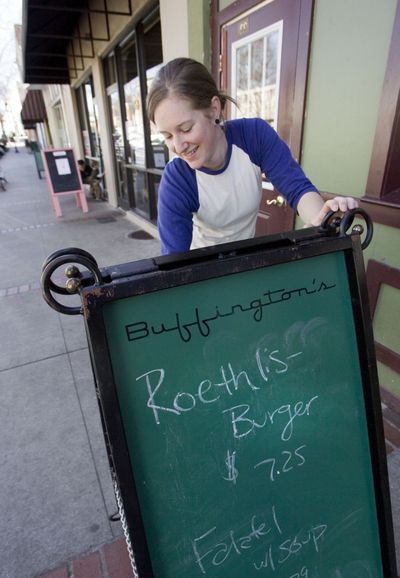 Buffington's
Roethlis-
Burger
$ 7.25
Falafel
w/ soup